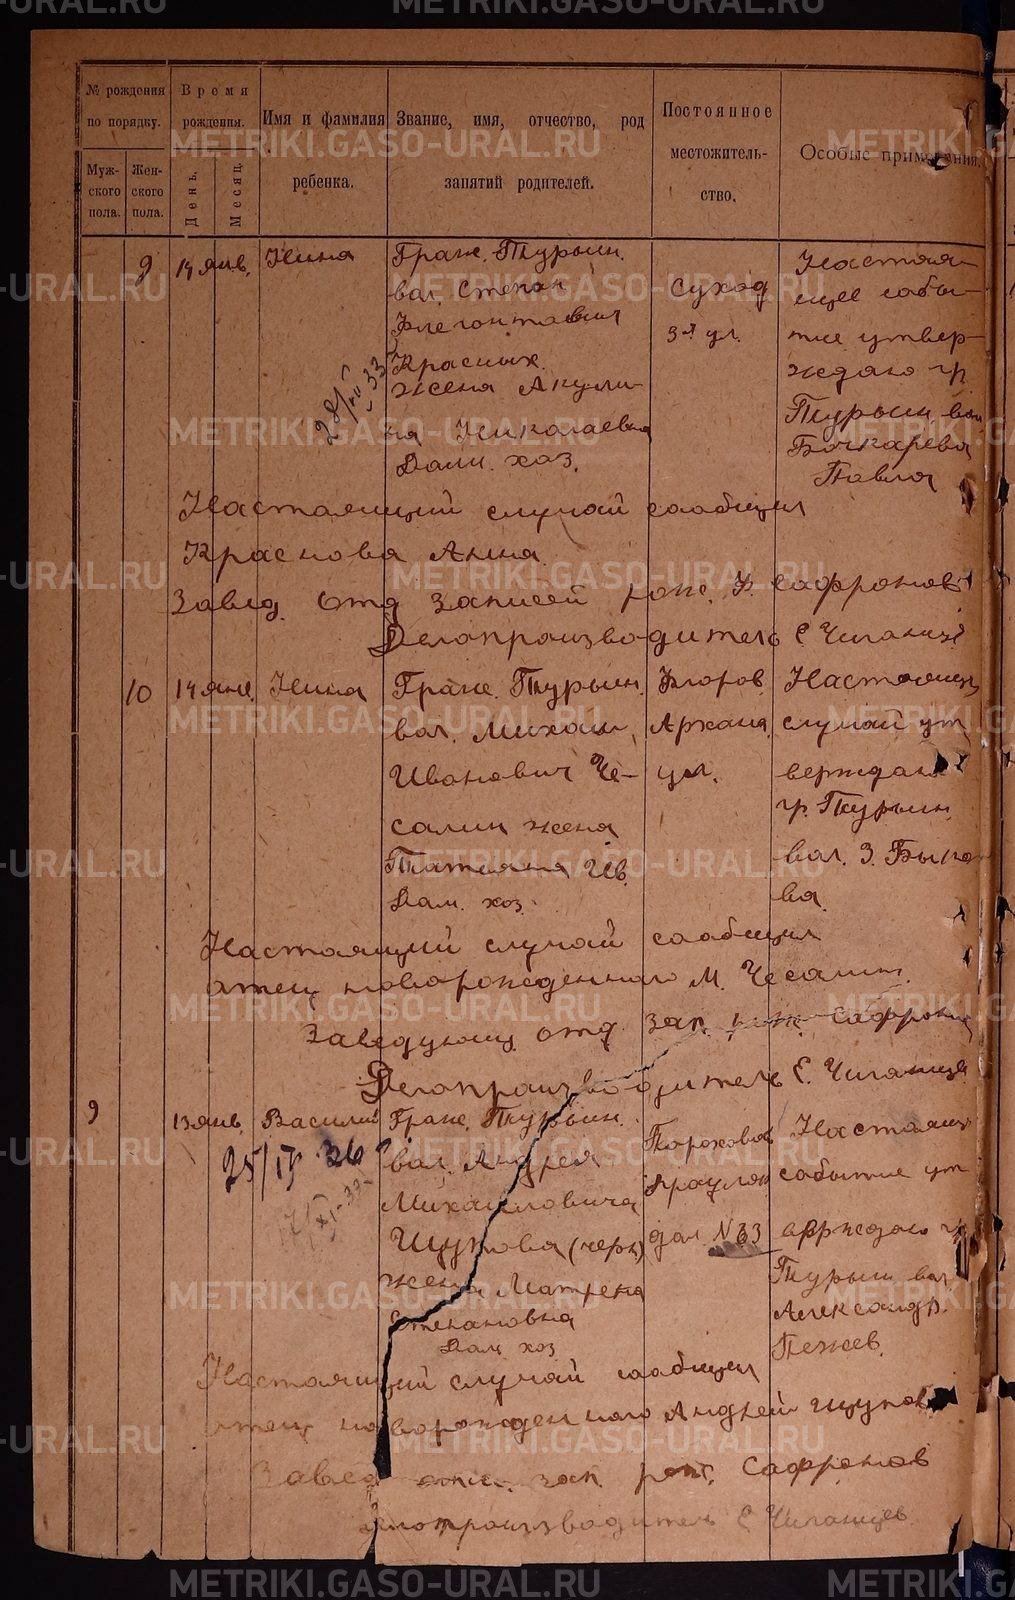 METRIKI.GASO-URAL.RU
№ рождения по порядку.
Время рождения.
Имя и фамилия ребенка.
Звание, имя, отчество, род занятий родителей.
Постоянное местожительство.
Особые примечания.
Мужского пола.
Женского пола.
День.
Месяц.
9
14 янв.
Нина
Граж. Турьин.
вал. Степан
Флегонтович
Красных.
жена Акули-
на Николаевна
Дом. хоз.
Суход
3я ул.
Настоя-
щее собы-
тие утвер-
ждаю гр.
Турьин. вол
Бочкарева
Павла
28/VII-33
Настоящий случай сообщил
Краснова Анна
Завед. Отд Записей рож. Ф. Сафронов
Делопроизводитель Е. Чиганцев
10
14 янв.
Нина
Граж. Турьин.
вол. Михаил
Иванович Че-
салин жена
Татьяна Ив.
Дом. хоз.
Флоров.
Архана
ул.
Настоящ
случай ут
верждаю
гр. Турьин
вол. З. Быко
ва.
Настоящий случай сообщил
отец новорожденного М. Чесалин.
Заведующ. отд зап. рож. Сафронов
Делопроизводитель Е. Чиганцев
9
13 янв.
Василий
25/IV 26
Граж. Турьин.
вол. Андрея
Михайловича
Щукова (черн)
жена Матрена
Степановна
Дом. хоз
Пороховая
Краулян
дол. № 63
Настоящ
событие ут
верждаю гр
Турьин. вол
Александр.
Пежев.
Настоящий случай сообщил
отец новорожденного Андрей Щуков
Завед отд. зап. рож. Сафронов
Делопроизводитель Е Чиганцев.